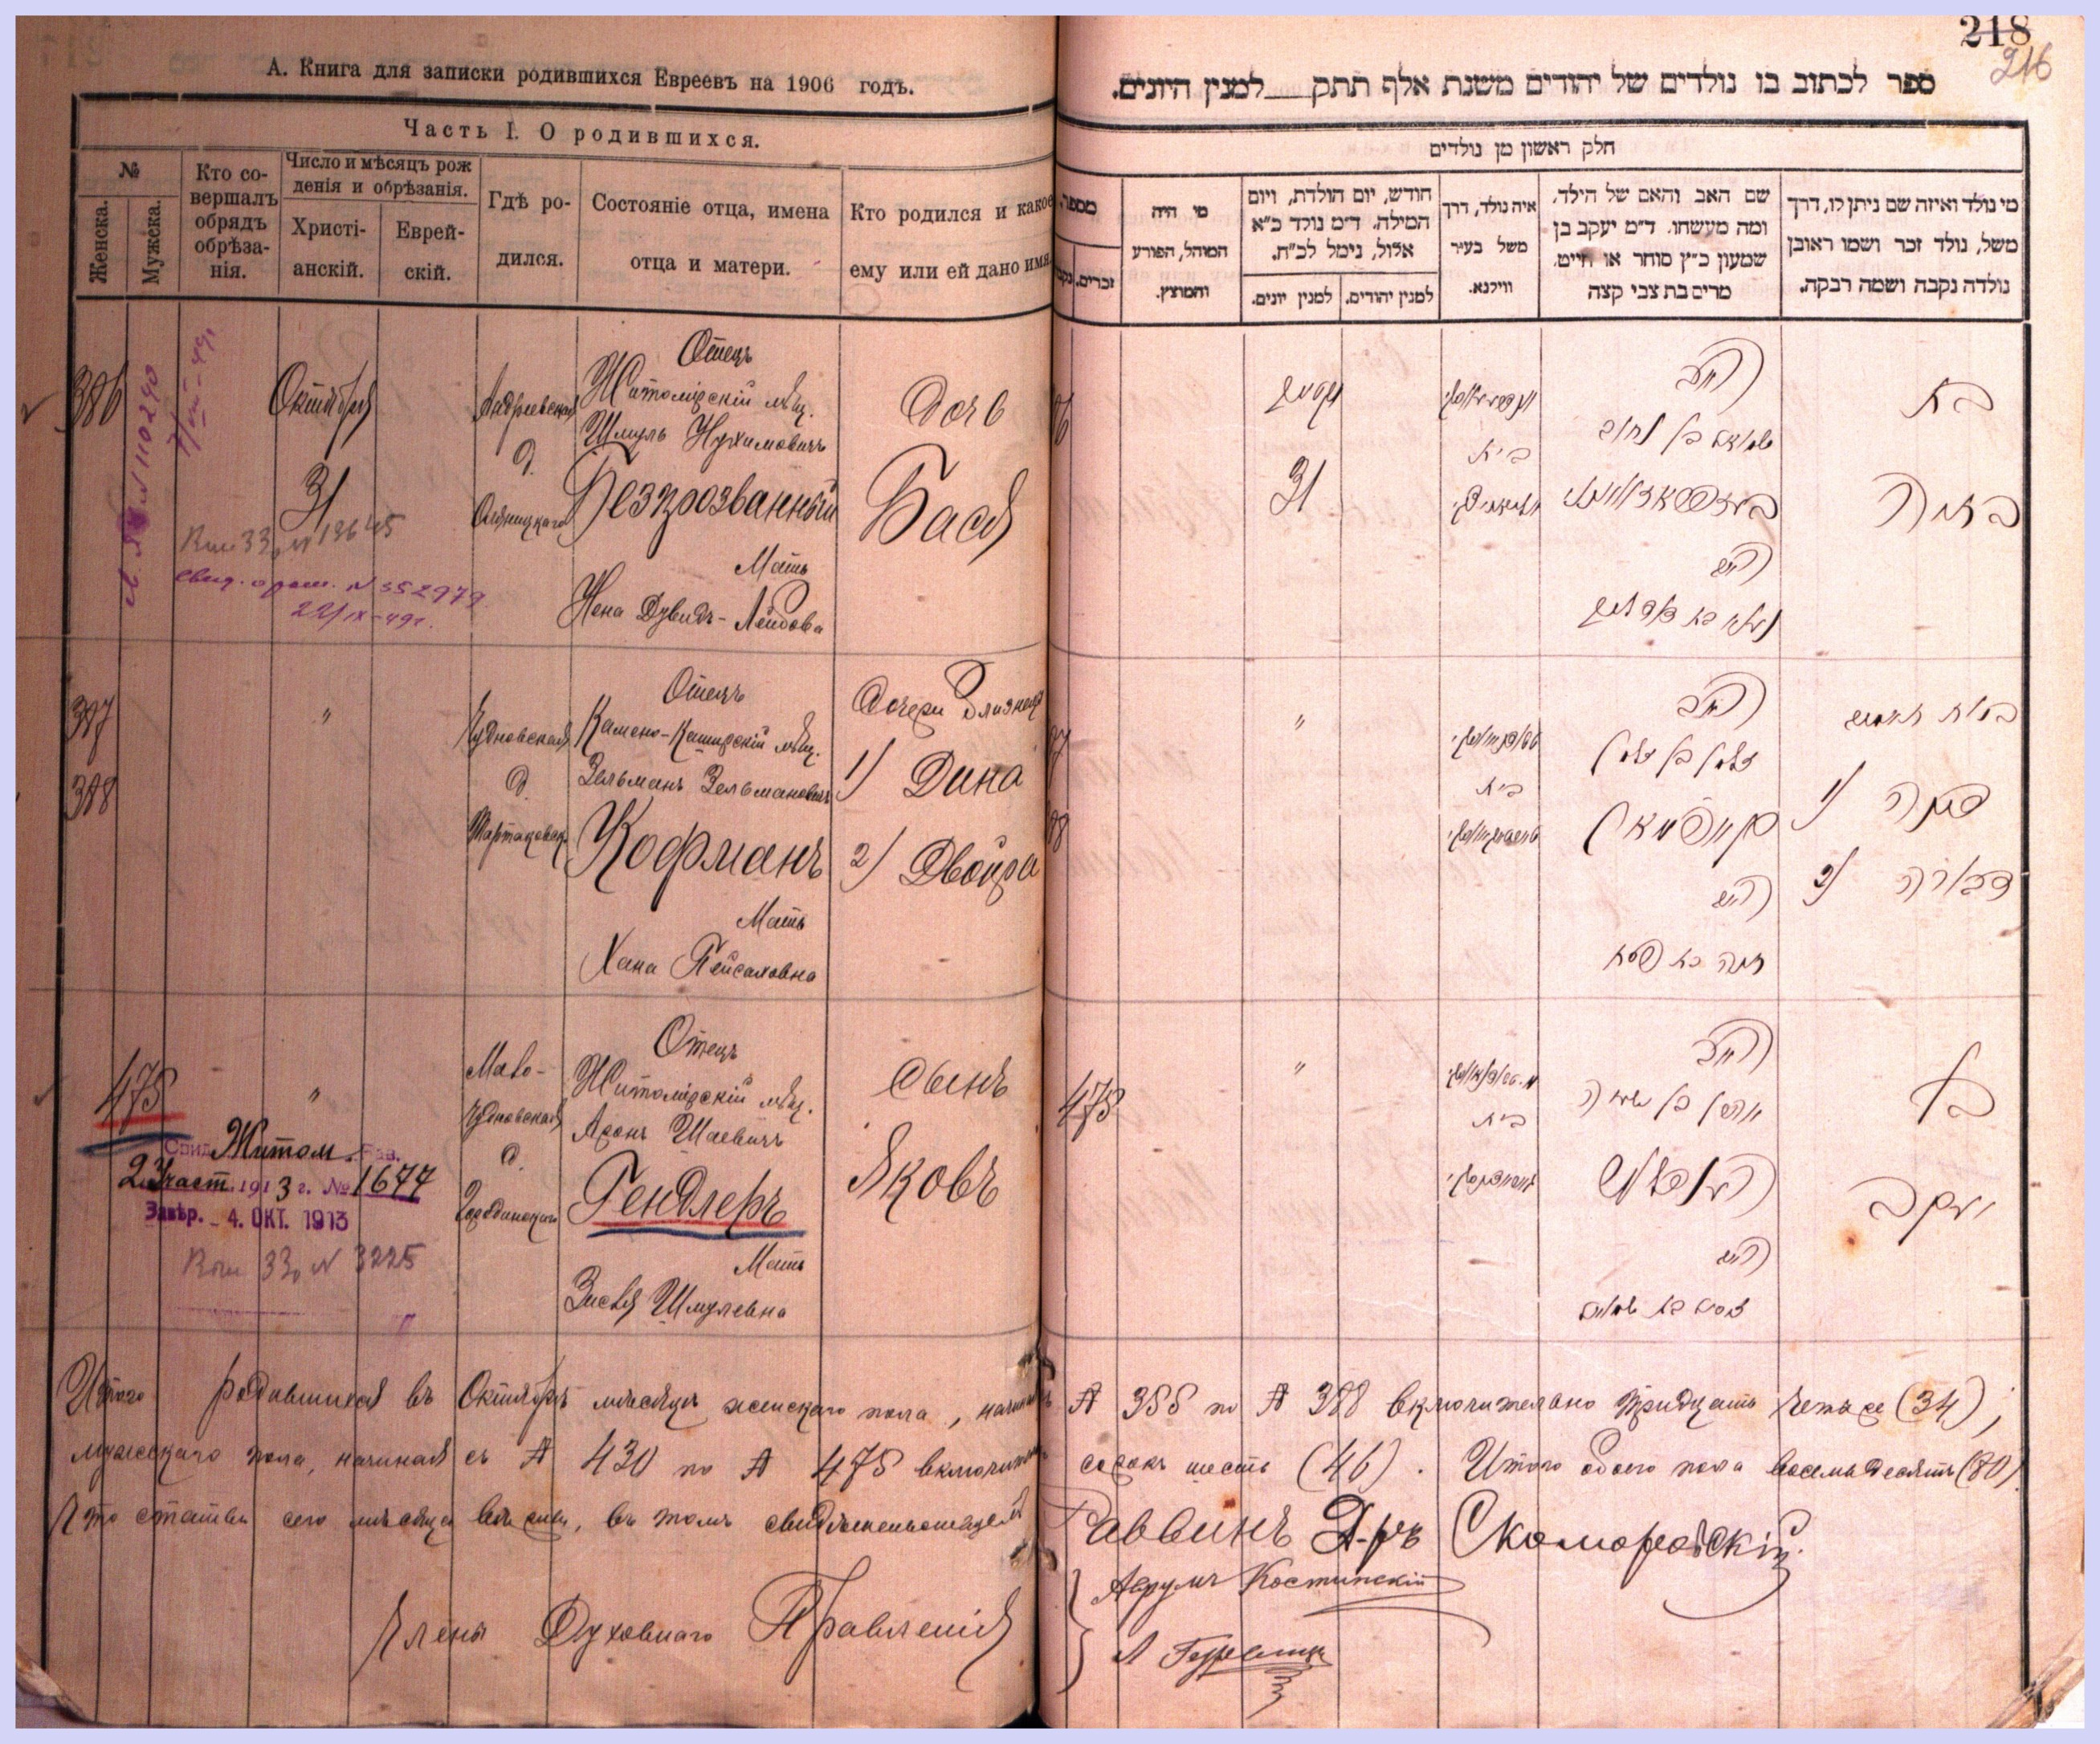 А. Книга для записки родившихся Евреевъ на 1906 годъ.
Часть I. О родившихся.
№
Женска.
Мужска.
Кто совершалъ обрядъ обрѣзанія.
Число и мѣсяцъ рожденія и обрѣзанія.
Христіанскій.
Еврейскій.
Гдѣ родился.
Состояніе отца, имена отца и матери.
Кто родился и какое ему или ей дано имя
386
Октября
31
Андреевская
д.
Отецъ
Житомірскій мѣщ.
Шмуль Нухимовичъ
Безпрозванный
Мать
Нена Дувидъ-Лейбова
Дочь
Бася
N 110290
N 13645
N 552979
22/IX-49г.
387
388
"
Чудновская
д.
Отецъ
Камено-Каширскій мѣщ.
Зельманъ Зельмановичъ
Кофманъ
Мать
Хана Пейсаховна
Дочери близнецы
1) Дина
2) Двойра
475
"
Мало-
Чудновская
д.
Отецъ
Житомірскій мѣщ.
Аронъ Шаевичъ
Гендлеръ
Мать
Зисля Шмулевна
Сынъ
Яковъ
Свид. Житом. Рав.
2 Участ. 1913 г. № 1677
Завѣр. 4. ОКТ. 1913
N 3225
Итого родившихся въ Октябрѣ мѣсяцѣ женскаго пола, начиная
мужескаго пола, начиная съ № 430 по № 475 включительно
Что статьи сего мѣсяца вѣрны, въ томъ свидѣтельствуемъ
Члены Духовнаго Правленія
218
216
ספר לכתוב בו נולדים של יהודים משנת אלף תתק למנין היונים.
חלק ראשון מן נולדים
מספר
זכרים.
מי היה המוהל, הפורע והמוצץ.
חודש, יום הולדת, ויום המילה. ד״מ נולד כ״א אלול, נימל לכ״ח.
למנין יונים.
למנין יהודים.
איה נולד, דרך משל בעיר ווילנא.
שם האב והאם של הילד, ומה מעשהו. ד״מ יעקב בן שמעון כ״ץ סוחר או חייט. מרים בת צבי קצה
מי נולד ואיזה שם ניתן לו, דרך משל, נולד זכר ושמו ראובן נולדה נקבה ושמה רבקה.
31
בית
האב
שמואל בן נחום
האם
בת
"
בית
האב
זלמן בן זלמן
קויפמאן
האם
חנה בת פסח
1)
דינה
2)
דבורה
475
"
בית
האב
אהרן בן ישעיה
הענדלער
האם
בן
יעקב
№ 355 по № 388 включительно тридцать четыре (34);
сорокъ шесть (46). Итого обоего пола восемьдесятъ (80).
Раввинъ Д-ръ Скоморовскій.
Аврумъ Костинскій